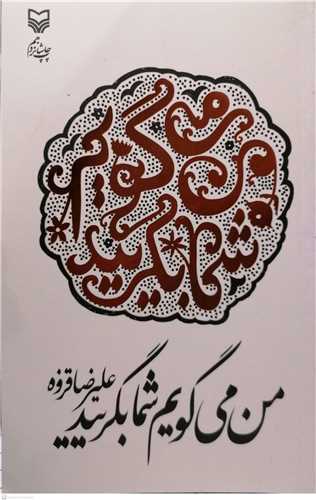 چاپ شانزدهم
من می گویم شما بگریید
علیرضا قزوه
من می گویم شما بگریید